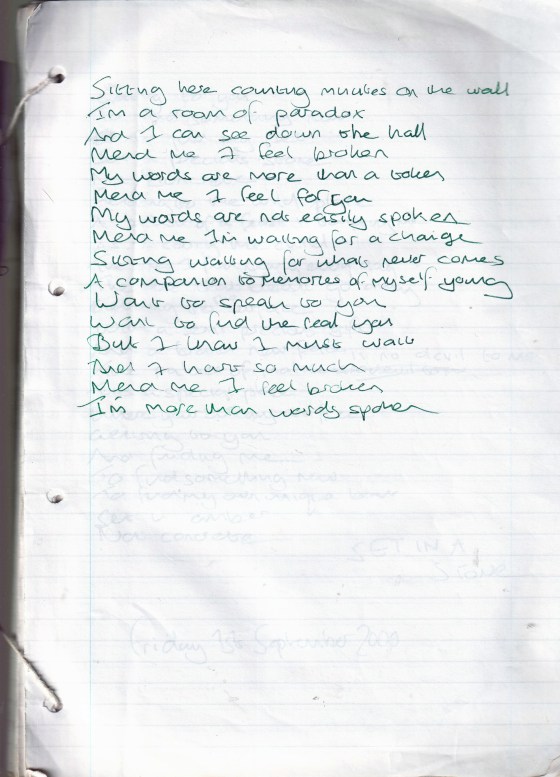 Sitting here counting minutes on the wall
I'm a room of paradox
And I can see down the hall
Mend me I feel broken
My words are more than a token
Mend me I feel for you
My words are not easily spoken
Mend me I'm waiting for a change
Sitting waiting for whats never comes
A companion to memories of myself young
Want to speak to you
Want to find the real you
But I know I must wait
And I hart so much
Mend me I feel broken
I'm more than words spoken
SET IN A
Stone
Friday 1st September 2000